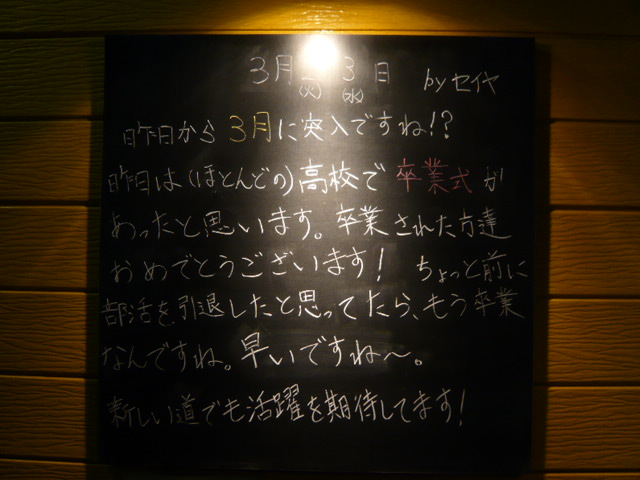 3月 3日 byセイヤ
(火) (水)
昨日から3月に突入ですね!?
昨日は(ほとんどの)高校で卒業式が
あったと思います。卒業された方達
おめでとうございます! ちょっと前に
部活を引退したと思ってたら、もう卒業
なんですね。早いですね〜。
新しい道でも活躍を期待してます!